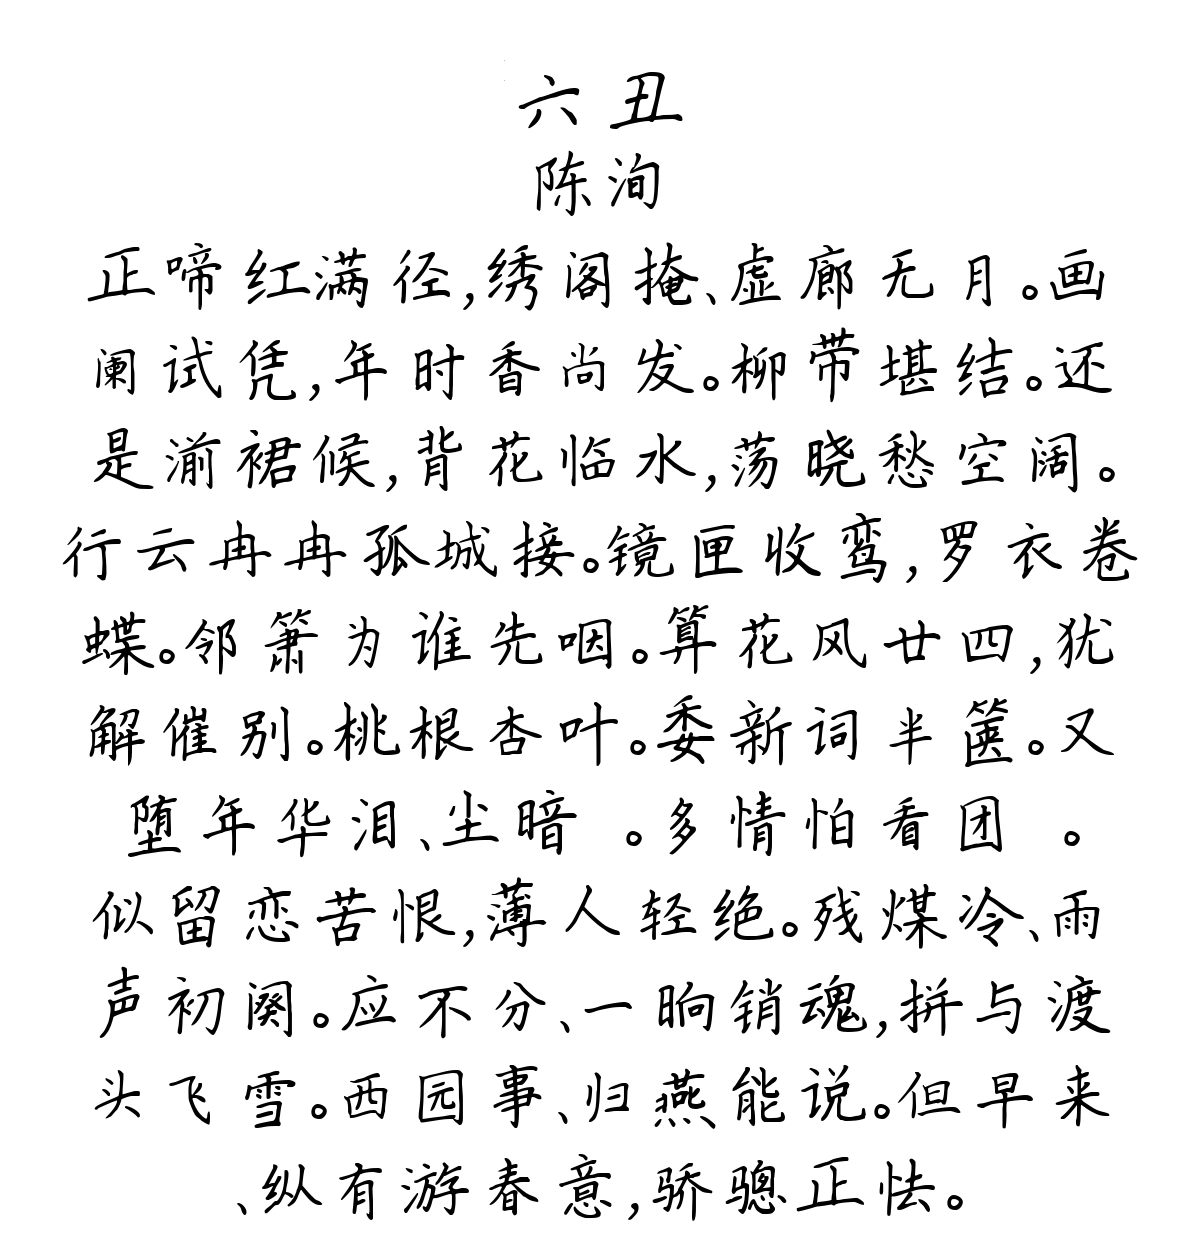 六丑
陈洵
正啼红满径，绣阁掩、虚廊无月。画
阑试凭，年时香尚发。柳带堪结。还
是湔裙候，背花临水，荡晓愁空阔。
行云冉冉孤城接。镜匣收鸾，罗衣卷
蝶。邻箫为谁先咽。算花风廿四，犹
解催别。桃根杏叶。委新词半箧。又
堕年华泪、尘暗 。多情怕看团 。
似留恋苦恨，薄人轻绝。残煤冷、雨
声初阕。应不分、一晌销魂，拼与渡
头飞雪。西园事、归燕能说。但早来
、纵有游春意，骄骢正怯。